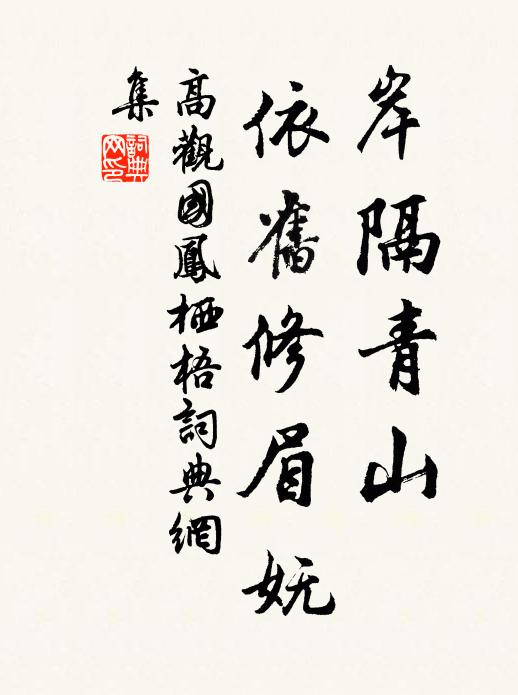 岸隔青山
依舊修眉嫵
高觀國鳳栖梧詞典網
集
詞典網印